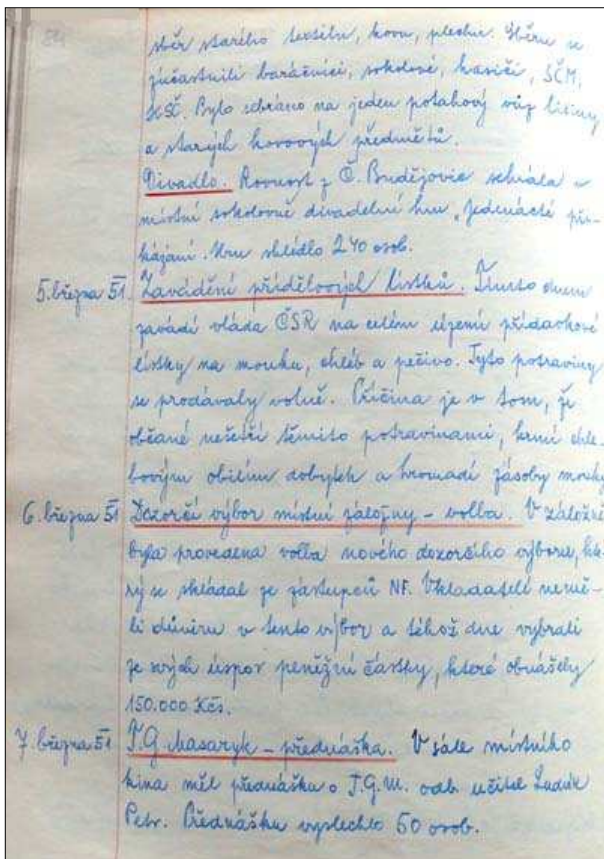 sběr starého textilu, kovu, plechu. Sběru se
zúčastnili baráčníci, sokolové, hasiči, SČM,
KSČ. Bylo sebráno na jeden potahový vůz litiny
a starých kovových předmětů.
Divadlo. Rovnost z Č. Budějovic sehrála v
místní sokolovně divadelní hru „Jedenácté při-
kázání. Hru shlédlo 240 osob.
5. března 51 Zavádění přídělových lístků. Tímto dnem
zavádí vláda ČSR na celém území přídavkové
lístky na mouku, chléb a pečivo. Tyto potraviny
se prodávaly volně. Příčina je v tom, že
občané nešetří těmito potravinami, krmí chle-
bovým obilím dobytek a hromadí zásoby mouky
6. března 51 Dozorčí výbor místní záložny – volba. V záložně
byla provedena volba nového dozorčího výboru, kte-
rý se skládal ze zástupců NF. Vkladatelé nemě-
li důvěru v tento výbor a téhož dne vybrali
ze svých úspor peněžní částky, které obnášely
150.000 Kčs.
7. března 51 T. G. Masaryk – přednáška. V sále místního
kina měl přednášku o T.G.M. odb. učitel Luděk
Petr. Přednášku vyslechlo 50 osob.